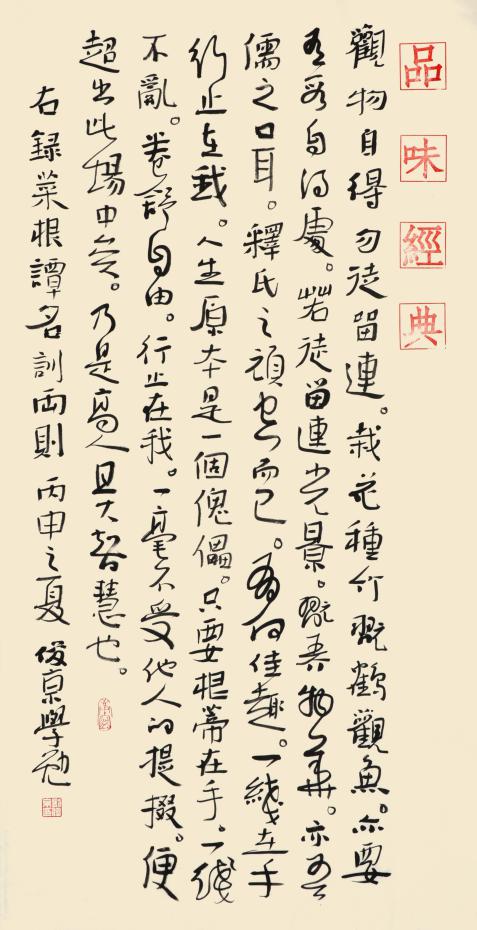 品味經典
觀物自得勿徒留連。栽花種竹翫鶴觀魚。亦要
有段自得處。若徒留連光景。翫弄物華。亦吾
儒之口耳。釋氏之頑空而已。有何佳趣。一綫在手
行止在我。人生原本是一個傀儡。只要根蒂在手。一綫
不亂。卷舒自由。行止在我。一毫不受他人的提掇。便
超出此場中矣。乃是高人且大智慧也。
右録菜根譚名訓兩則 丙申之夏 俊京學勉